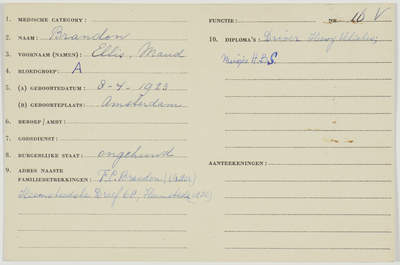 1. MEDISCHE CATEGORY :
2. NAAM : Brandon
3. VOORNAAM (NAMEN) : Ellis, Maud
4. BLOEDGROEP : A
5. (A) GEBOORTEDATUM : 8-4-1923
(B) GEBOORTEPLAATS : Amsterdam
6. BEROEP / AMBT :
7. GODSDIENST :
8. BURGERLIJKE STAAT : ongehuwd
9. ADRES NAASTE
FAMILIEBETREKKINGEN : F.P. Brandon (Vader)
Heemsteedsche Dreef 68, Heemstede
FUNCTIE : NR. 16 V
10. DIPLOMA'S : Driver Heavy Vehicles,
Meisjes H.B.S.
AANTEEKENINGEN :